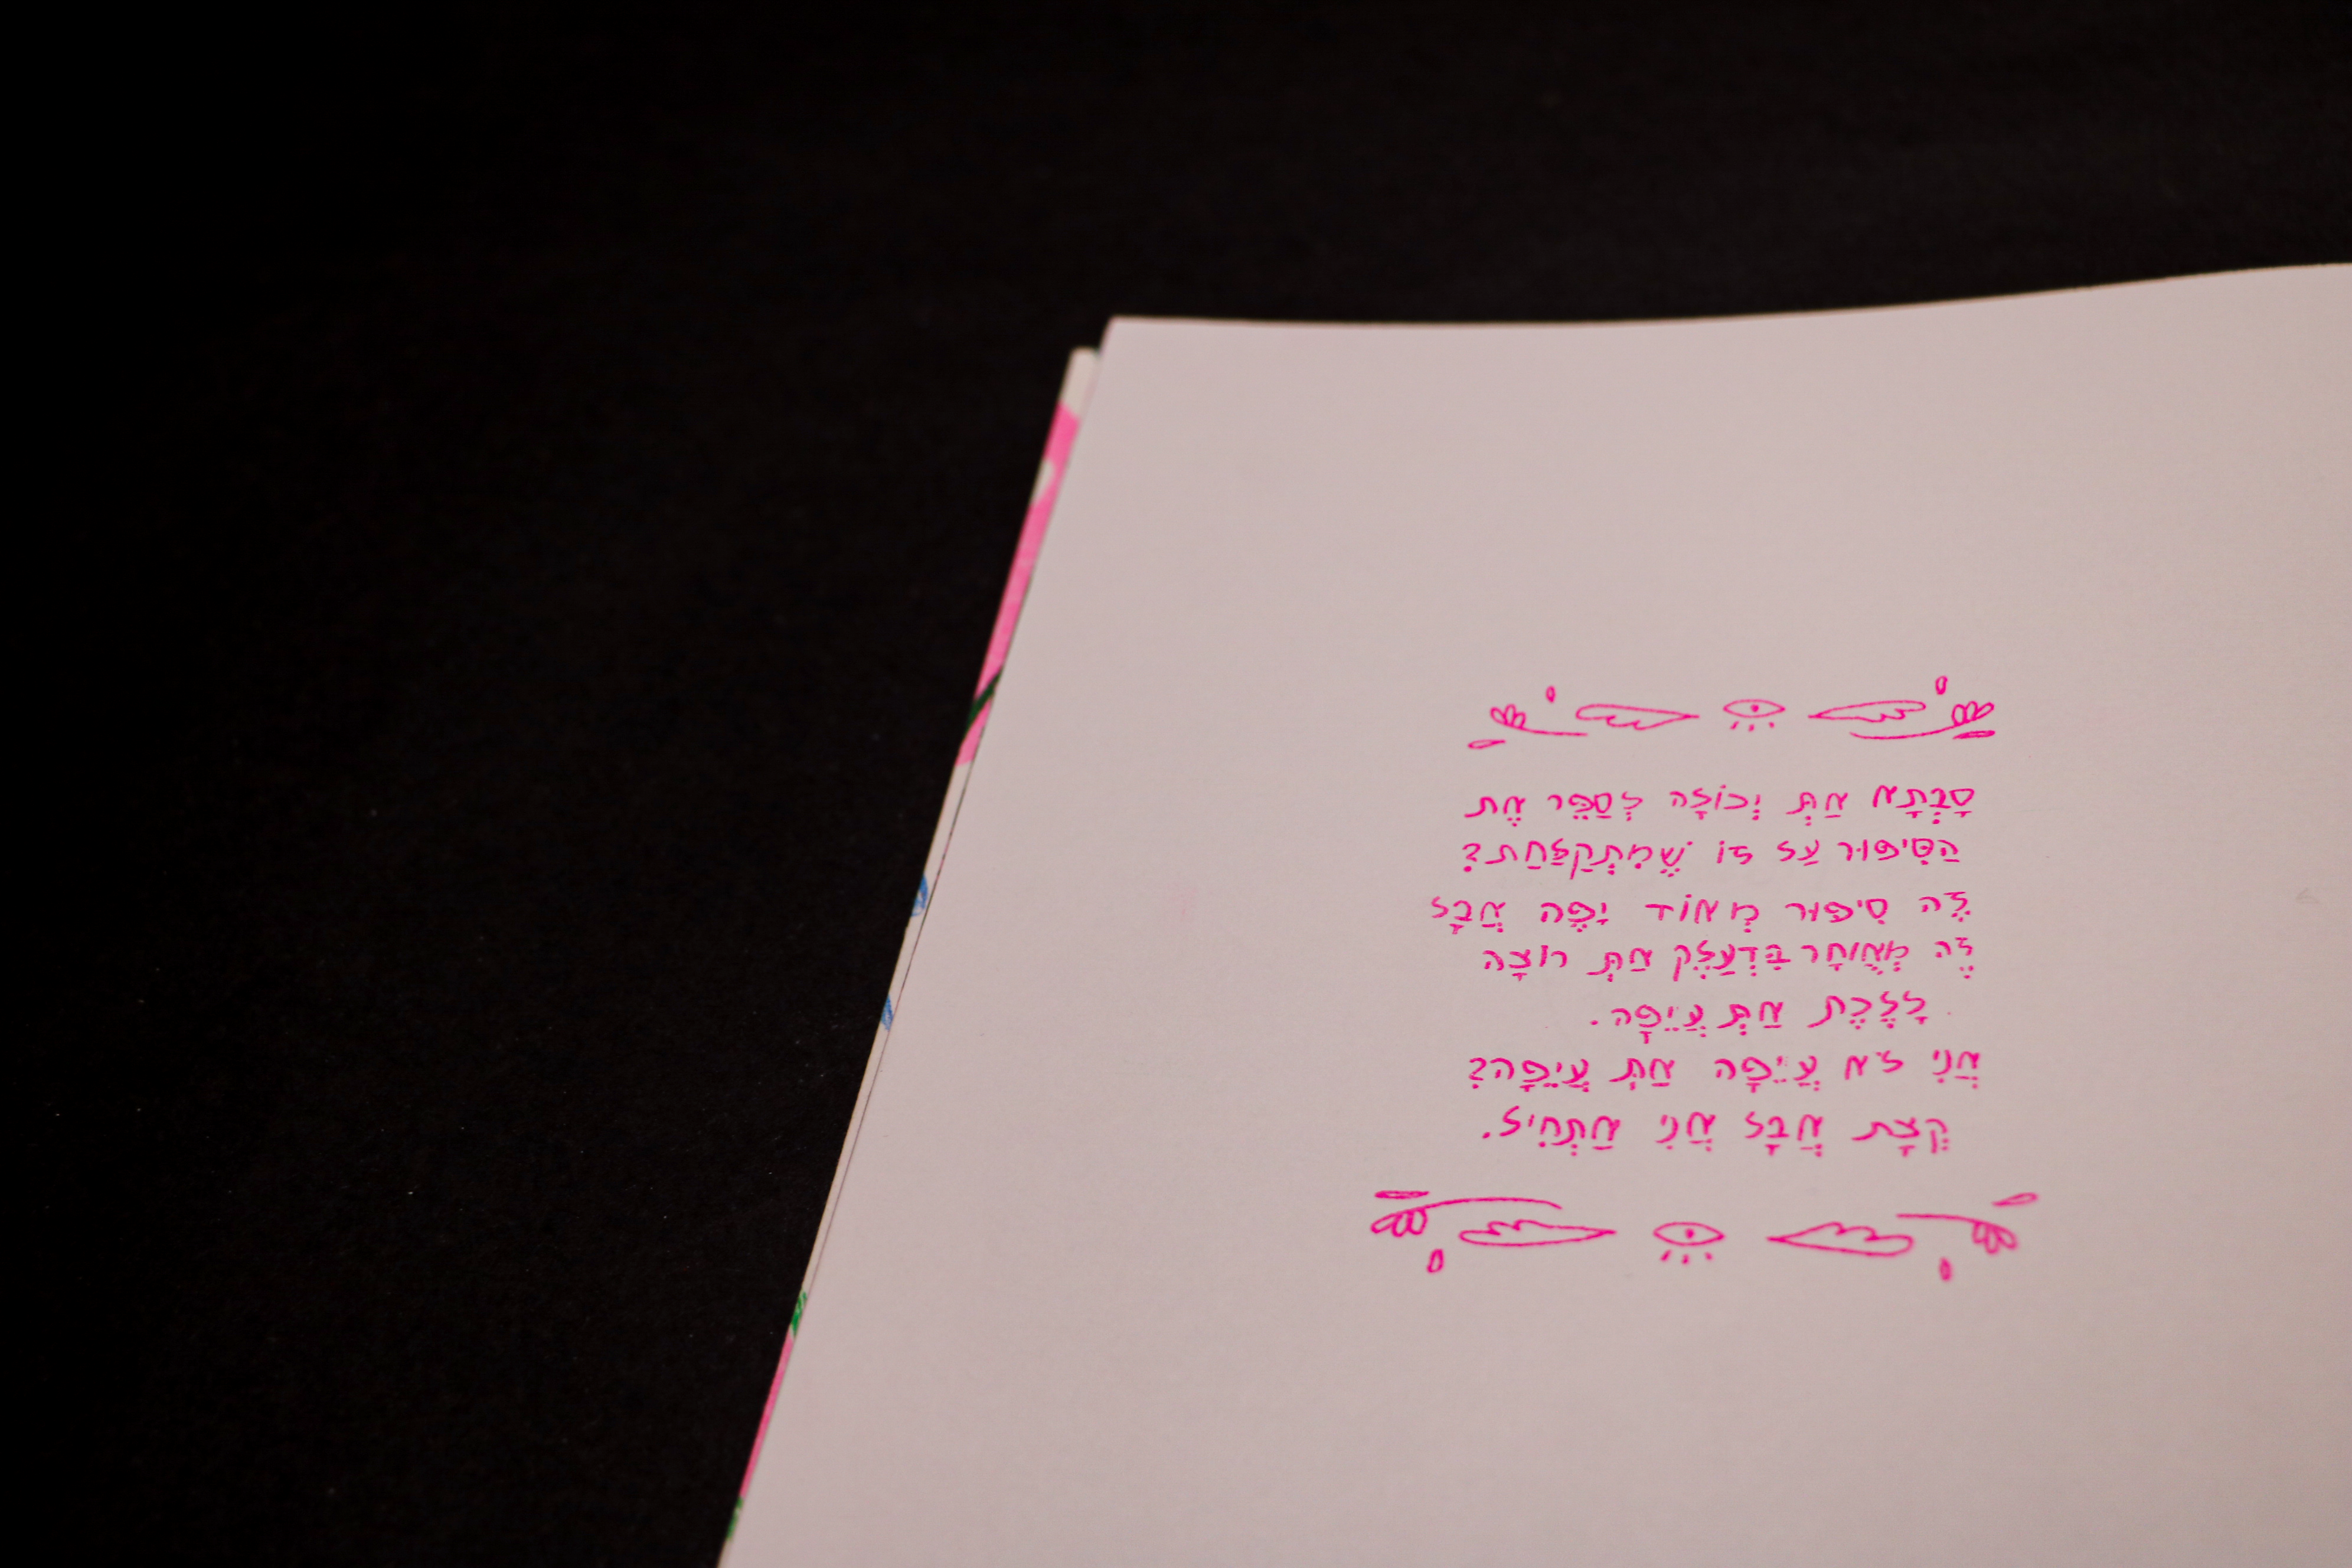 סָבְתָא אַתְּ יְכוֹלָה לְסַפֵּר אֶת
הַסִּיפּוּר עַל זוֹ שֶׁמִתְקַלַּחַת?
זֶּה סִיפּוּר מְאוֹד יָפֶה אֲבָל
זֶּה מְאֻוחָר בִּדְעַלֶק אַתְּ רוֹצָה
לָלֶכֶת אַתְּ עֲיֵיפָה.
אֲנִי לֹא עֲיֵיפָה אַתְּ עֲיֵיפָה?
קְצָת אֲבָל אֲנִי אַתְחִיל.